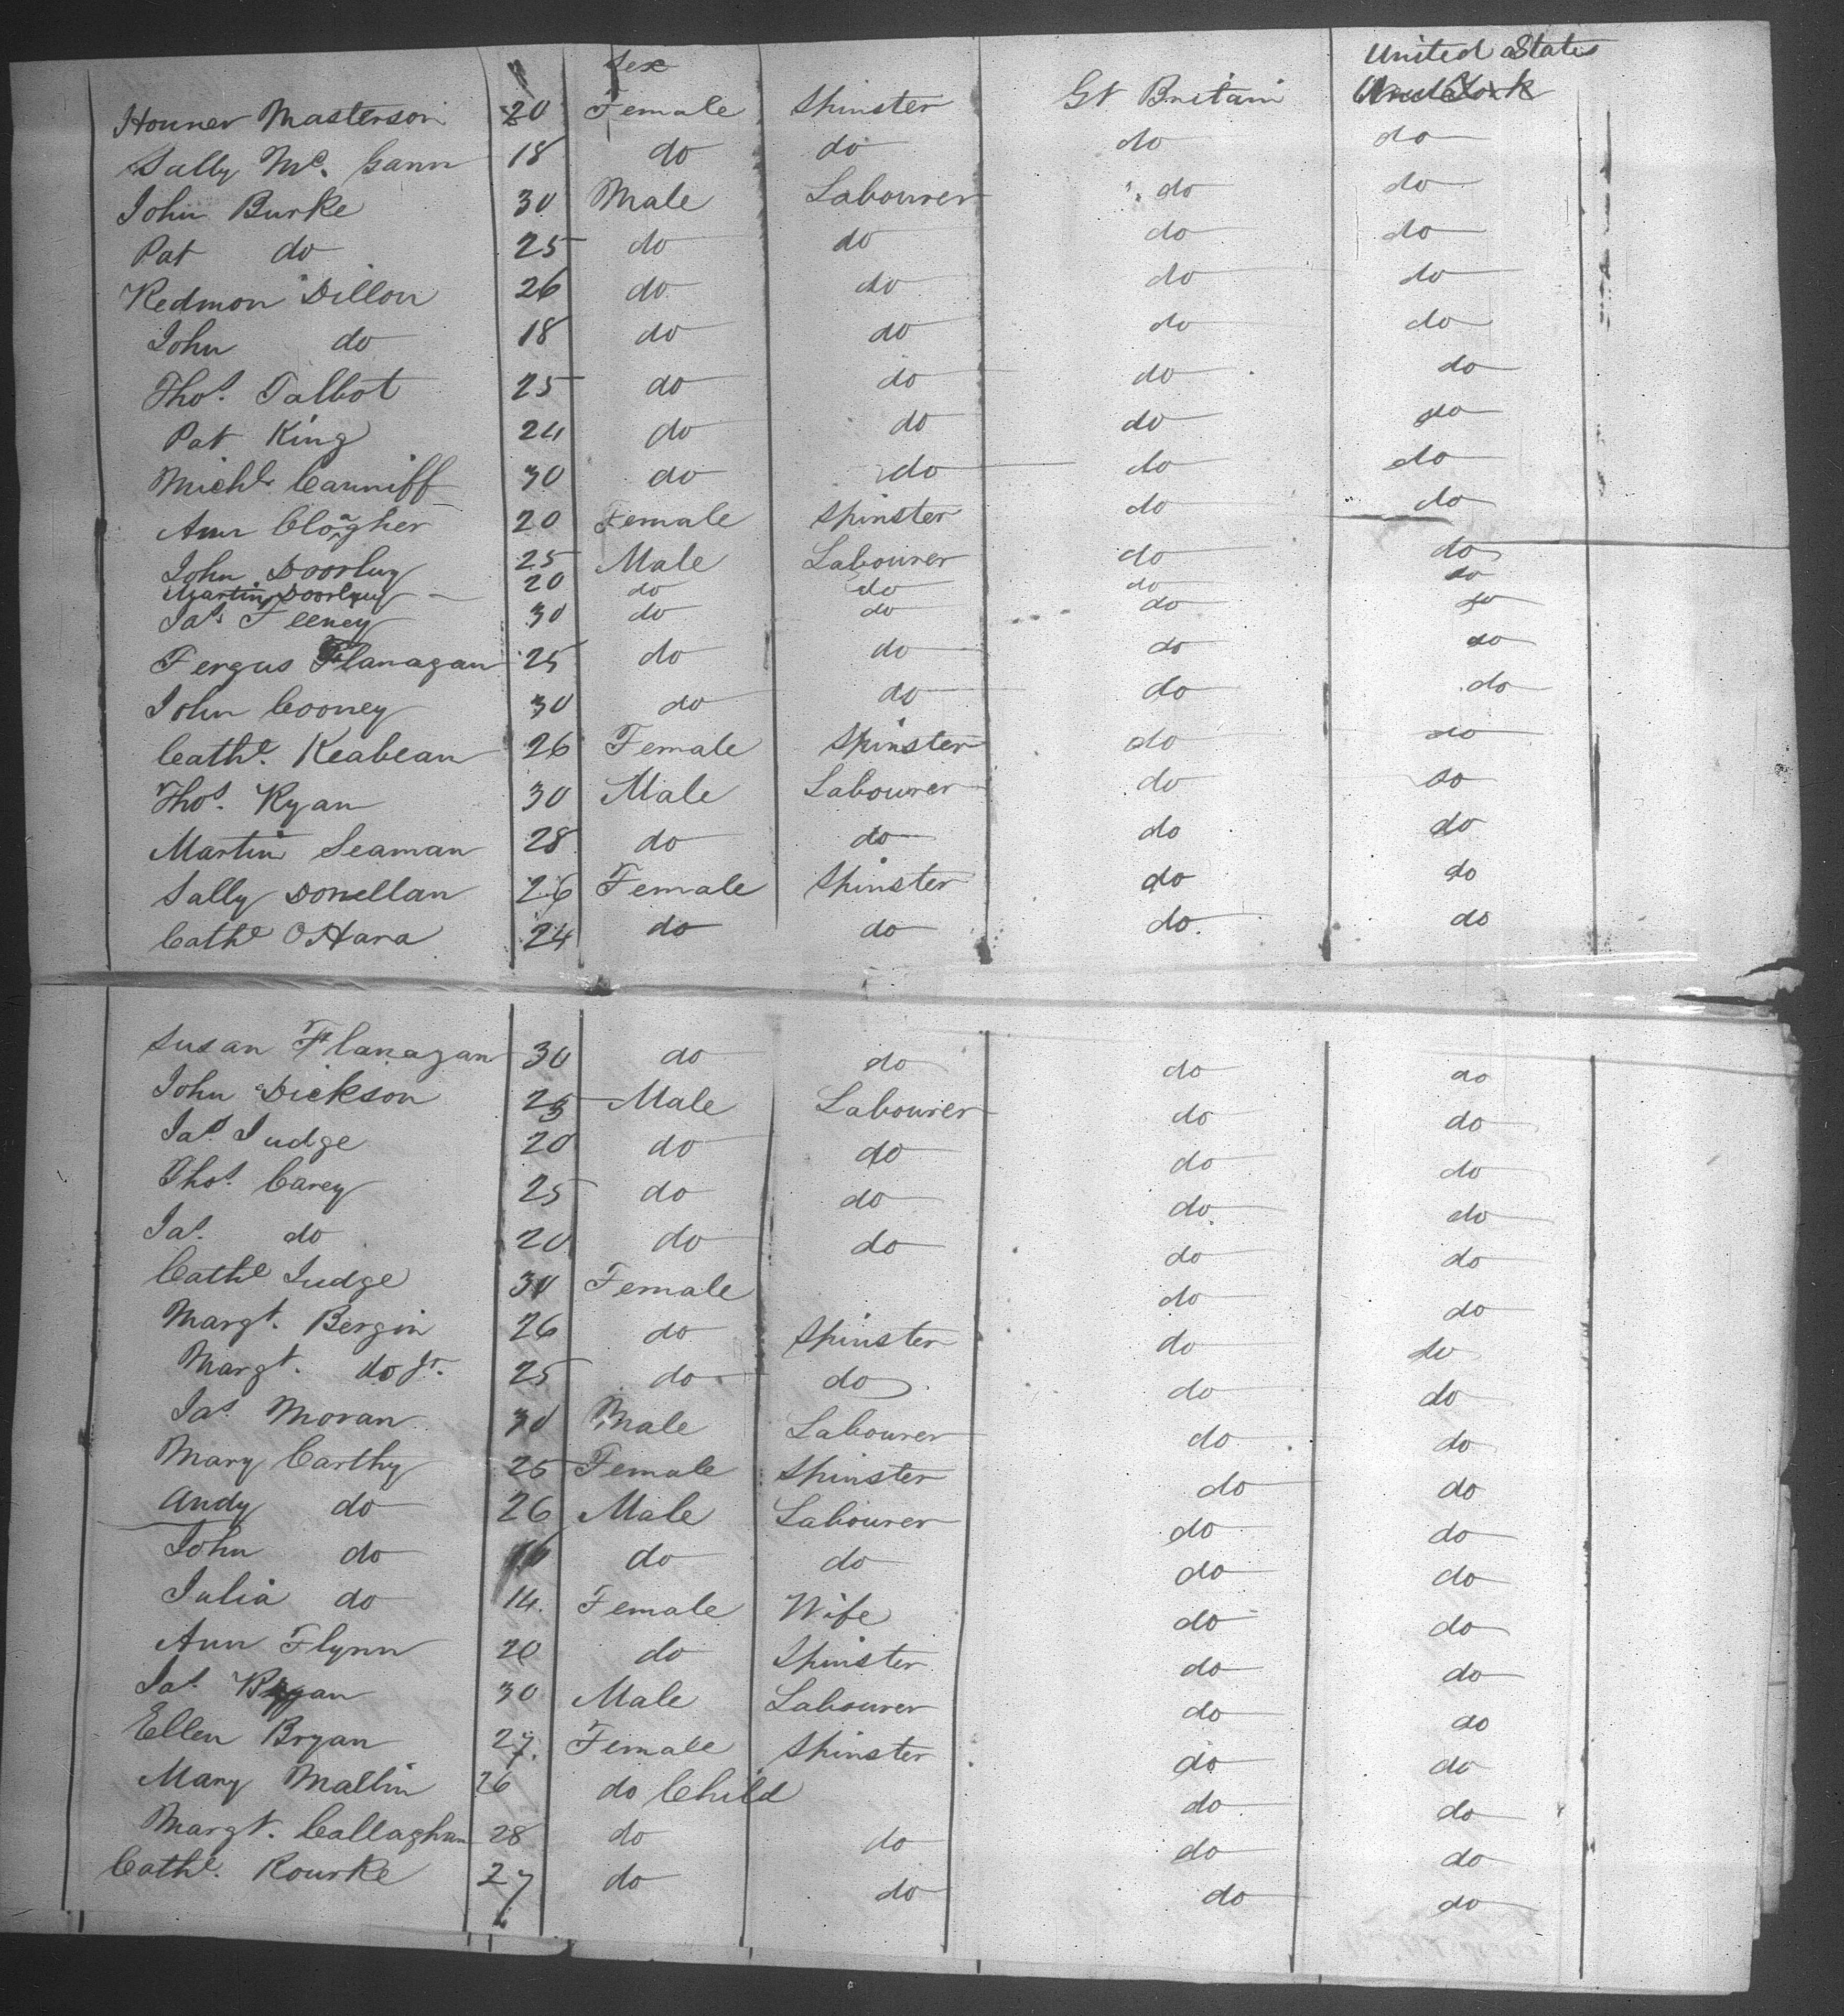 Sex United States
Honner Masterson 20 Female Spinster Gt Britain New York
Sally Mc. Gann 18 do do do do
John Burke 30 Male Labourer do do
Pat do 25 do do do do
Redmon Dillon 26 do do do do
John do 18 do do do do
Thos. Talbot 25 do do do do
Pat King 24 do do do do
Michl. Canniff 30 do do do do
Ann Cloagher 20 Female Spinster do do
John Doorluy 25 Male Labourer do do
Martin Doorluy 20 do do do do
Jas. Feeney 30 do do do do
Fergus Flanagan 25 do do do do
John Cooney 30 do do do do
Cathe. Keabean 26 Female Spinster do do
Thos. Ryan 30 Male Labourer do do
Martin Seaman 28 do do do do
Sally Donellan 26 Female Spinster do do
Cathe OHara 24 do do do do
Susan Flanagan 30 do do do do
John Dickson 25 Male Labourer do do
Jas. Judge 20 do do do do
Thos. Carey 25 do do do do
Jas. do 20 do do do do
Cathe Judge 30 Female do do
Margt. Bergin 26 do Spinster do do
Margt. do Jr. 25 do do do do
Jas. Moran 30 Male Labourer do do
Mary Carthy 25 Female Spinster do do
Andy do 26 Male Labourer do do
John do 16 do do do do
Julia do 14. Female Wife do do
Ann Flynn 20 do Spinster do do
Jas. Ryan 30 Male Labourer do do
Ellen Bryan 27. Female Spinster do do
Mary Mallin 26 do Child do do
Margt. Callaghan 28 do do do do
Cathe. Rourke 27 do do do do